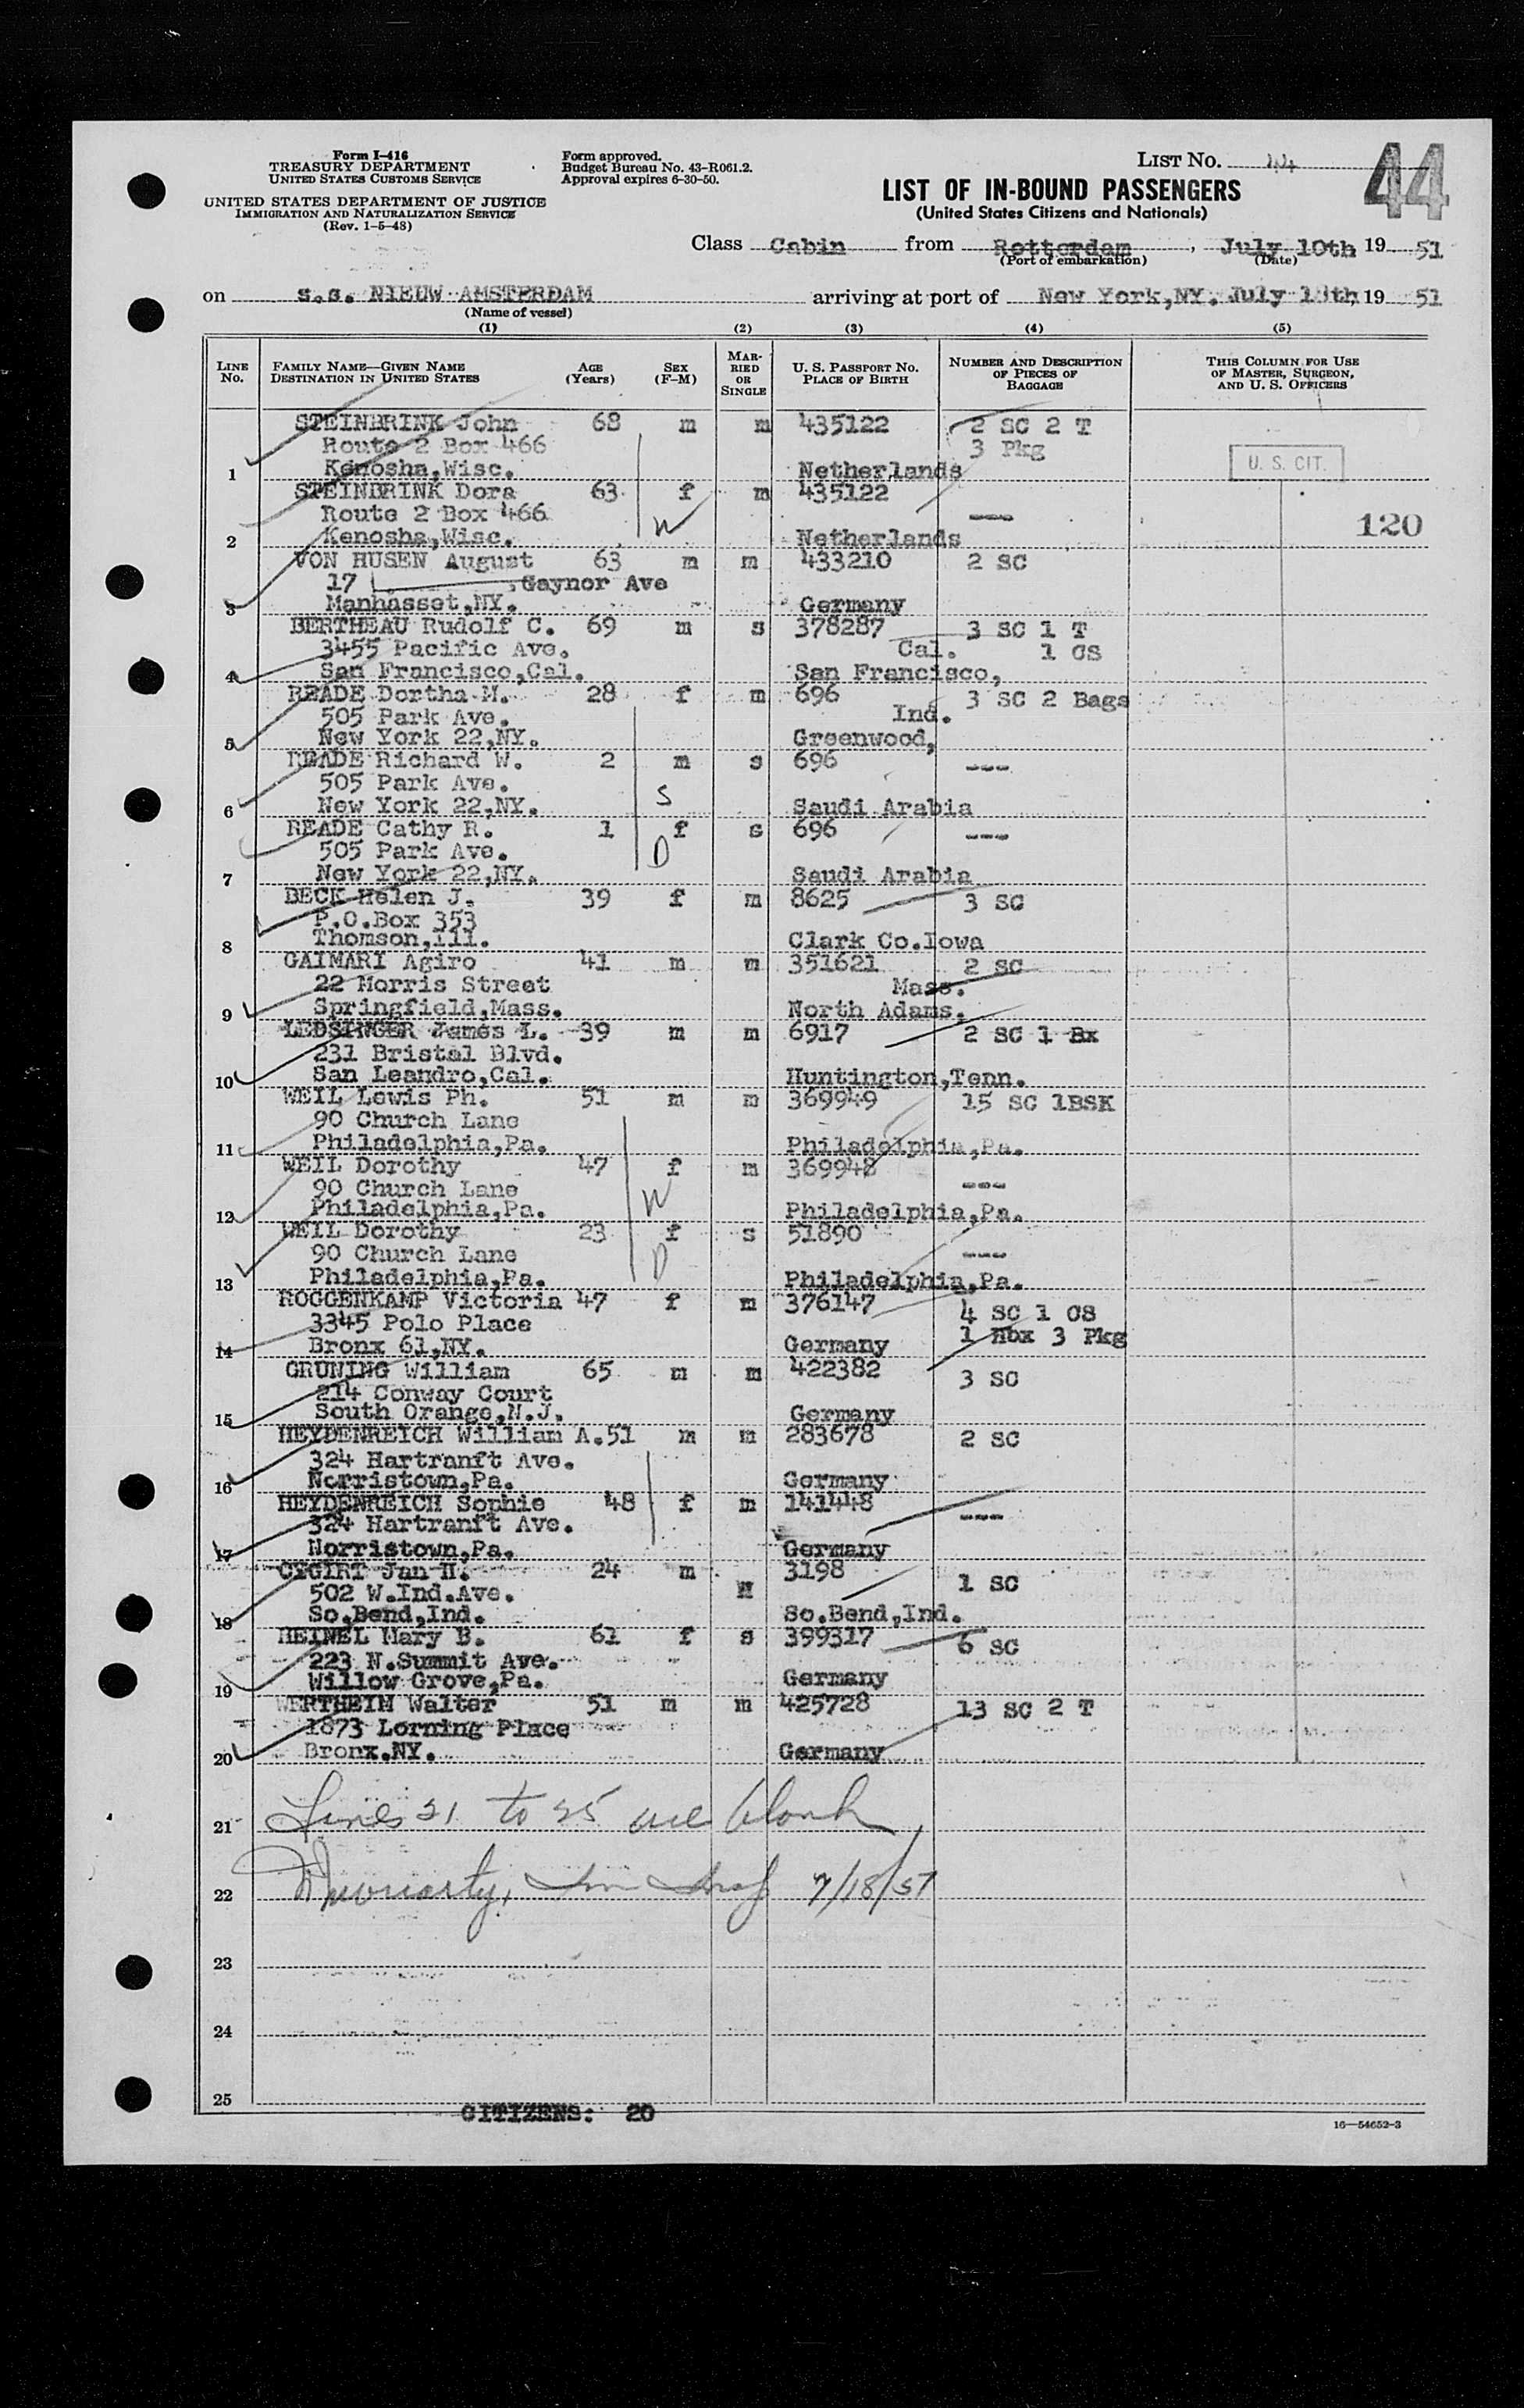 Form I-416
TREASURY DEPARTMENT
UNITED STATES CUSTOMS SERVICE
UNITED STATES DEPARTMENT OF JUSTICE
IMMIGRATION AND NATURALIZATION SERVICE
(Rev. 1-5-48)
Form approved.
Budget Bureau No. 43-R061.2.
Approval expires 6-30-50.
LIST NO. 44
44
LIST OF IN-BOUND PASSENGERS
(United States Citizens and Nationals)
Class Cabin from Rotterdam, July 10th 19 51
(Port of embarkation) (Date)
on s.s. NIEUW AMSTERDAM arriving at port of New York,NY. July 18th, 19 51
(Name of vessel)
(1) (2) (3) (4) (5)
LINE NO.
FAMILY NAME—GIVEN NAME
DESTINATION IN UNITED STATES
AGE (Years)
SEX (F-M)
MARRIED OR SINGLE
U. S. PASSPORT NO.
PLACE OF BIRTH
NUMBER AND DESCRIPTION OF PIECES OF BAGGAGE
THIS COLUMN FOR USE OF MASTER, SURGEON, AND U. S. OFFICERS
STEINBRINK John 68 m m 435122 2 SC 2 T
Route 2 Box 466 3 Pkg
1 Kenosha,Wisc. Netherlands U. S. CIT.
STEINBRINK Dora 63 f m 435122
Route 2 Box 466 W --- 120
2 Kenosha,Wisc. Netherlands
VON HUSEN August 63 m m 433210 2 SC
17 Gaynor Ave
3 Manhasset,NY. Germany
BERTHEAU Rudolf C. 69 m s 378287 3 SC 1 T
3455 Pacific Ave. Cal. 1 CS
4 San Francisco,Cal. San Francisco,
READE Dortha M. 28 f m 696 3 SC 2 Bags
505 Park Ave. Ind.
5 New York 22,NY. Greenwood,
READE Richard W. 2 m s 696 ---
505 Park Ave. S
6 New York 22,NY. Saudi Arabia
READE Cathy R. 1 f s 696 ---
505 Park Ave. D
7 New York 22,NY. Saudi Arabia
BECK Helen J. 39 f m 8625 3 SC
P.O.Box 353
8 Thomson,Ill. Clark Co.Iowa
GAIMARI Agiro 41 m m 351621 2 SC
22 Morris Street Mass.
9 Springfield,Mass. North Adams,
LEDSINGER James L. 39 m m 6917 2 SC 1 Bx
231 Bristal Blvd.
10 San Leandro,Cal. Huntington,Tenn.
WEIL Lewis Ph. 51 m m 369949 15 SC 1BSK
90 Church Lane
11 Philadelphia,Pa. Philadelphia,Pa.
WEIL Dorothy 47 f m 369948
90 Church Lane W ---
12 Philadelphia,Pa. Philadelphia,Pa.
WEIL Dorothy 23 f s 51890
90 Church Lane D ---
13 Philadelphia,Pa. Philadelphia,Pa.
ROGGENKAMP Victoria 47 f m 376147 4 SC 1 CS
3345 Polo Place 1 Hbx 3 Pkg
14 Bronx 61,NY. Germany
GRUNING William 65 m m 422382 3 SC
214 Conway Court
15 South Orange,N.J. Germany
HEYDENREICH William A. 51 m m 283678 2 SC
324 Hartranft Ave.
16 Norristown,Pa. Germany
HEYDENREICH Sophie 48 f m 141448 ---
324 Hartranft Ave.
17 Norristown,Pa. Germany
CYGIRT Jan H. 24 m M 3198 1 SC
502 W.Ind.Ave.
18 So.Bend,Ind. So.Bend,Ind.
HEINEL Mary B. 61 f s 399317 6 SC
223 N.Summit Ave.
19 Willow Grove,Pa. Germany
WERTHEIM Walter 51 m m 425728 13 SC 2 T
1873 Lorning Place
20 Bronx.NY. Germany
21 Lines 21 to 25 are blank
22 Moriarty, Imm Insp 7/18/51
23
24
25
CITIZENS: 20
16—54652-3